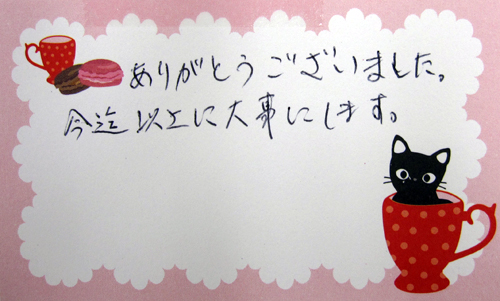 ありがとうございました。
今迄以上に大事にします。